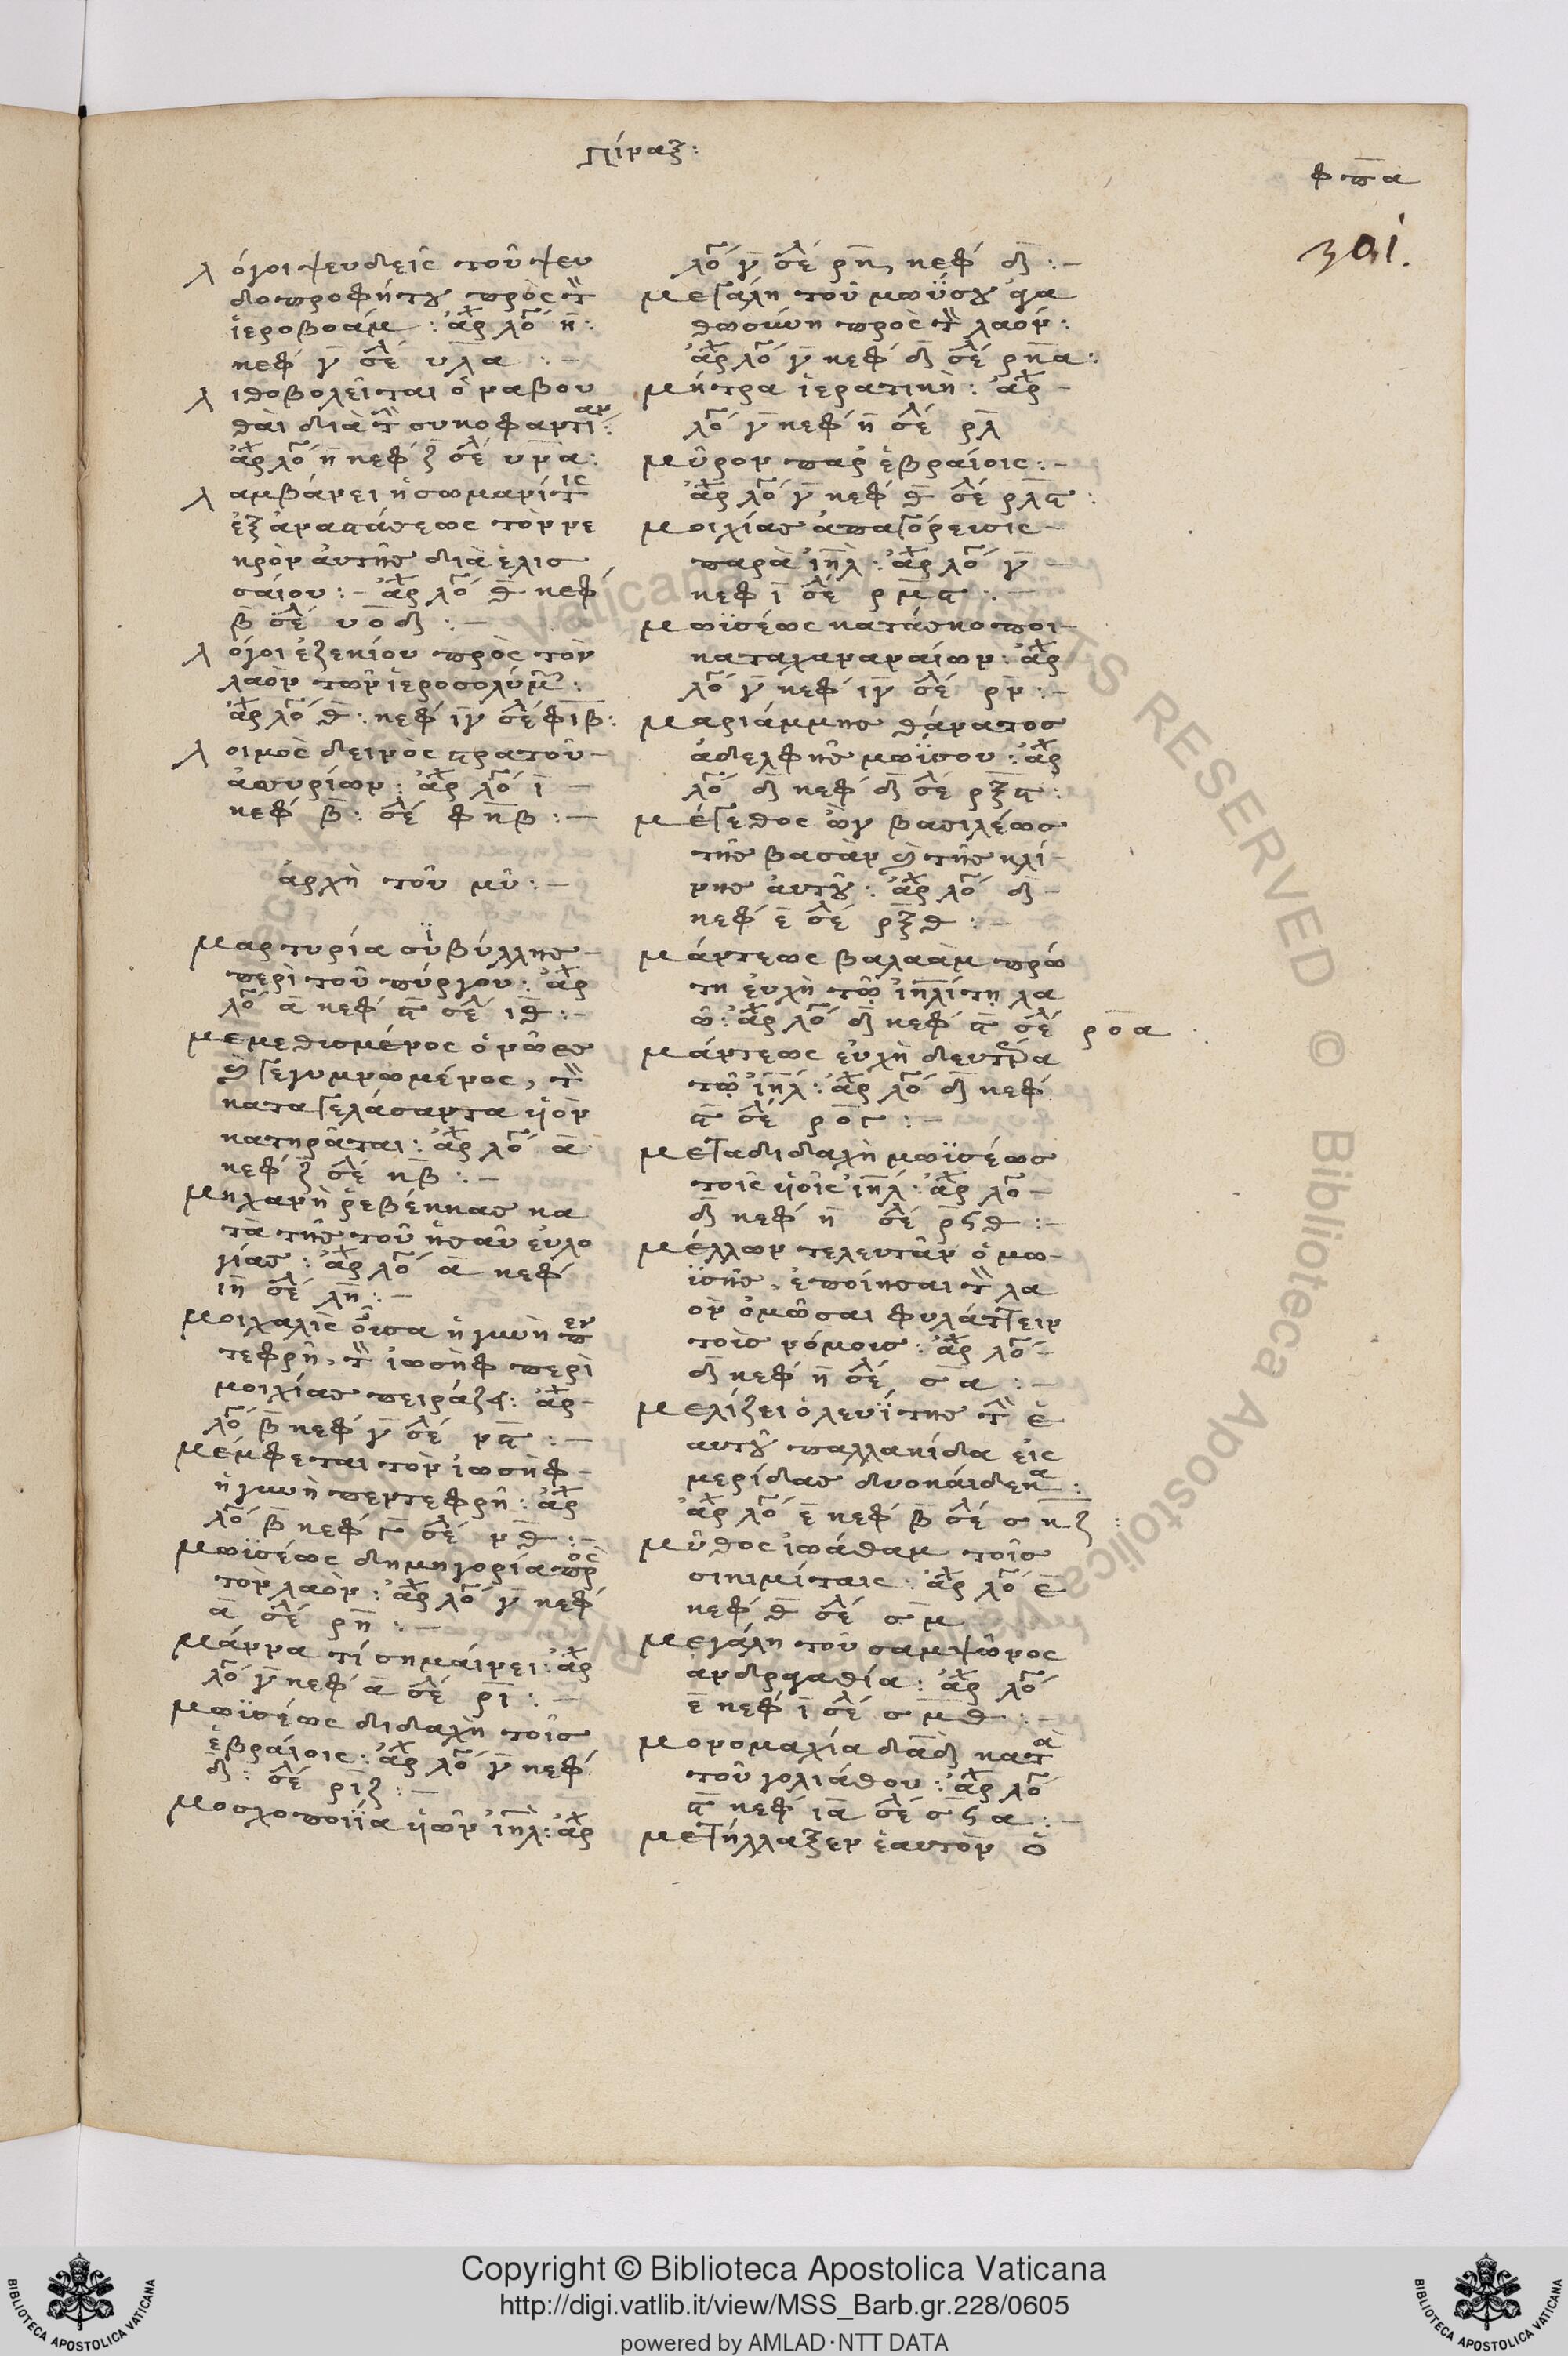 πίναξ:
φπα
301.
λόγοι ψευδεῖς τοῦ ψευ
δοπροφήτου πρὸς τὸν
ἱεροβοάμ: ἀρχ λό η:
κεφ γ σελ υλα :-
λιθοβολεῖται ὁ ναβου
θαὶ διὰ τὴν συκοφαντίαν:
ἀρχ λό η κεφ ζ σελ υμα:
λαμβάνει ἡ σωμανίτις
ἐξ ἀναστάσεως τὸν νε
κρὸν αὐτῆς διὰ ἐλισ
σαίου:- ἀρχ λό θ κεφ
β σελ υοδ :-
λόγοι ἐζεκίου πρὸς τὸν
λαὸν τῶν ἱεροσολύμ:
ἀρχ λό θ: κεφ ιγ σελ φιβ:
λοιμὸς δεινὸς στρατοῦ-
ἀσυρίων: ἀρχ λό ι -
κεφ β: σελ φκβ:-
ἀρχὴ τοῦ μῦ:-
μαρτυρία συβύλλης-
περὶ τοῦ πύργου: ἀρχ
λό α κεφ στ σελ ιθ:-
μεμεθισμένος ὁ νῶες
καὶ γεγυμνωμένος, τὸν
καταγελάσαντα υἱὸν
κατηρᾶται: ἀρχ λό α
κεφ ζ σελ κβ:-
μηχανὴ ῥεβέκκας κα
τὰ τῆς τοῦ ἠσαῦ εὐλο
γίας: ἀρχ λό α κεφ
ιη σελ λη:-
μοιχαλὶς οὖσα ἡ γυνὴ πεν
τεφρῆ, τὸν ἰωσὴφ περὶ
μοιχίας πειράζει: ἀρχ-
λό β κεφ γ σελ νστ:-
μέμφεται τὸν ἰωσὴφ-
ἡ γυνὴ πεντεφρῆ: ἀρχ
λό β κεφ γ σελ νθ:-
μωϋσέως δημηγορία πρὸς
τὸν λαὸν: ἀρχ λό γ κεφ
α σελ ρη:-
μάννα τί σημαίνει: ἀρχ
λό γ κεφ α σελ ρι:-
μωϋσέως διδαχὴ τοῖς
ἑβραίοις: ἀρχ λό γ κεφ
δ: σελ ριζ:-
μοσχοποιΐα υἱῶν ἰηλ: ἀρχ
λό γ σελ ρκ, κεφ δ:-
μεγάλη τοῦ μωϋσου ἀγα
θωσύνη πρὸς τὸν λαόν:
ἀρχ λό γ κεφ δ σελ ρκα:
μήτρα ἱερατικὴ: ἀρχ-
λό γ κεφ η σελ ρλ
μῦρον παρ ἑβραίοις:-
ἀρχ λό γ κεφ θ σελ ρλστ:
μοιχίας ἀπαγόρευσις-
παρὰ ἰηλ: ἀρχ λό γ -
κεφ ι σελ ρμστ:-
μωϋσέως κατάσκοποι-
καταχαναναίων: ἀρχ
λό γ κεφ ιγ σελ ρν:-
μαριάμμης θάνατος
ἀδελφῆς μωϋσου: ἀρχ
λό δ κεφ δ σελ ρξστ:
μέγεθος ὢγ βασιλέως
τῆς βασὰν καὶ τῆς κλί-
νης αὐτοῦ: ἀρχ λό δ-
κεφ ε σελ ρξθ:-
μάντεως βαλαὰμ πρώ
τη εὐχὴ τῷ ἰηλίτῃ λα
ῷ: ἀρχ λό δ κεφ στ σελ ροα
μάντεως εὐχὴ δευτέρα
τῷ ἰηλ: ἀρχ λό δ κεφ
στ σελ ρογ:-
μεταδιδαχὴ μωϋσέως
τοῖς υἱοῖς ἰηλ: ἀρχ λό-
δ κεφ η σελ ρϟθ:-
μέλλων τελευτᾶν ὁ μω-
ϋσῆς, ἐποίησαι τὸν λα
ὸν ὀμῶσαι φυλάττειν
τοὶς νόμοις: ἀρχ λό-
δ κεφ η σελ σα:-
μελίζει ὁ λευΐτης τὴν ἑ
αυτοῦ παλλακίδα εἰς
μερίδας δυοκάιδεκα:
ἀρχ λό ε κεφ β σελ σκζ:
μῦθος ἰωάθαμ τοῖς
σικιμίταις: ἀρχ λό ε
κεφ θ σελ σμ
μεγάλη τοῦ σαμψῶνος
ἀνδραγαθία: ἀρχ λό
ε κεφ ι σελ σμθ:-
μονομαχία δαδ κατὰ
τοῦ γολιάθου: ἀρχ λό
στ κεφ ια σελ σϟα:-
μετήλλαξεν ἑαυτὸν ὁ
Copyright © Biblioteca Apostolica Vaticana
http://digi.vatlib.it/view/MSS_Barb.gr.228/0605
powered by AMLAD·NTT DATA